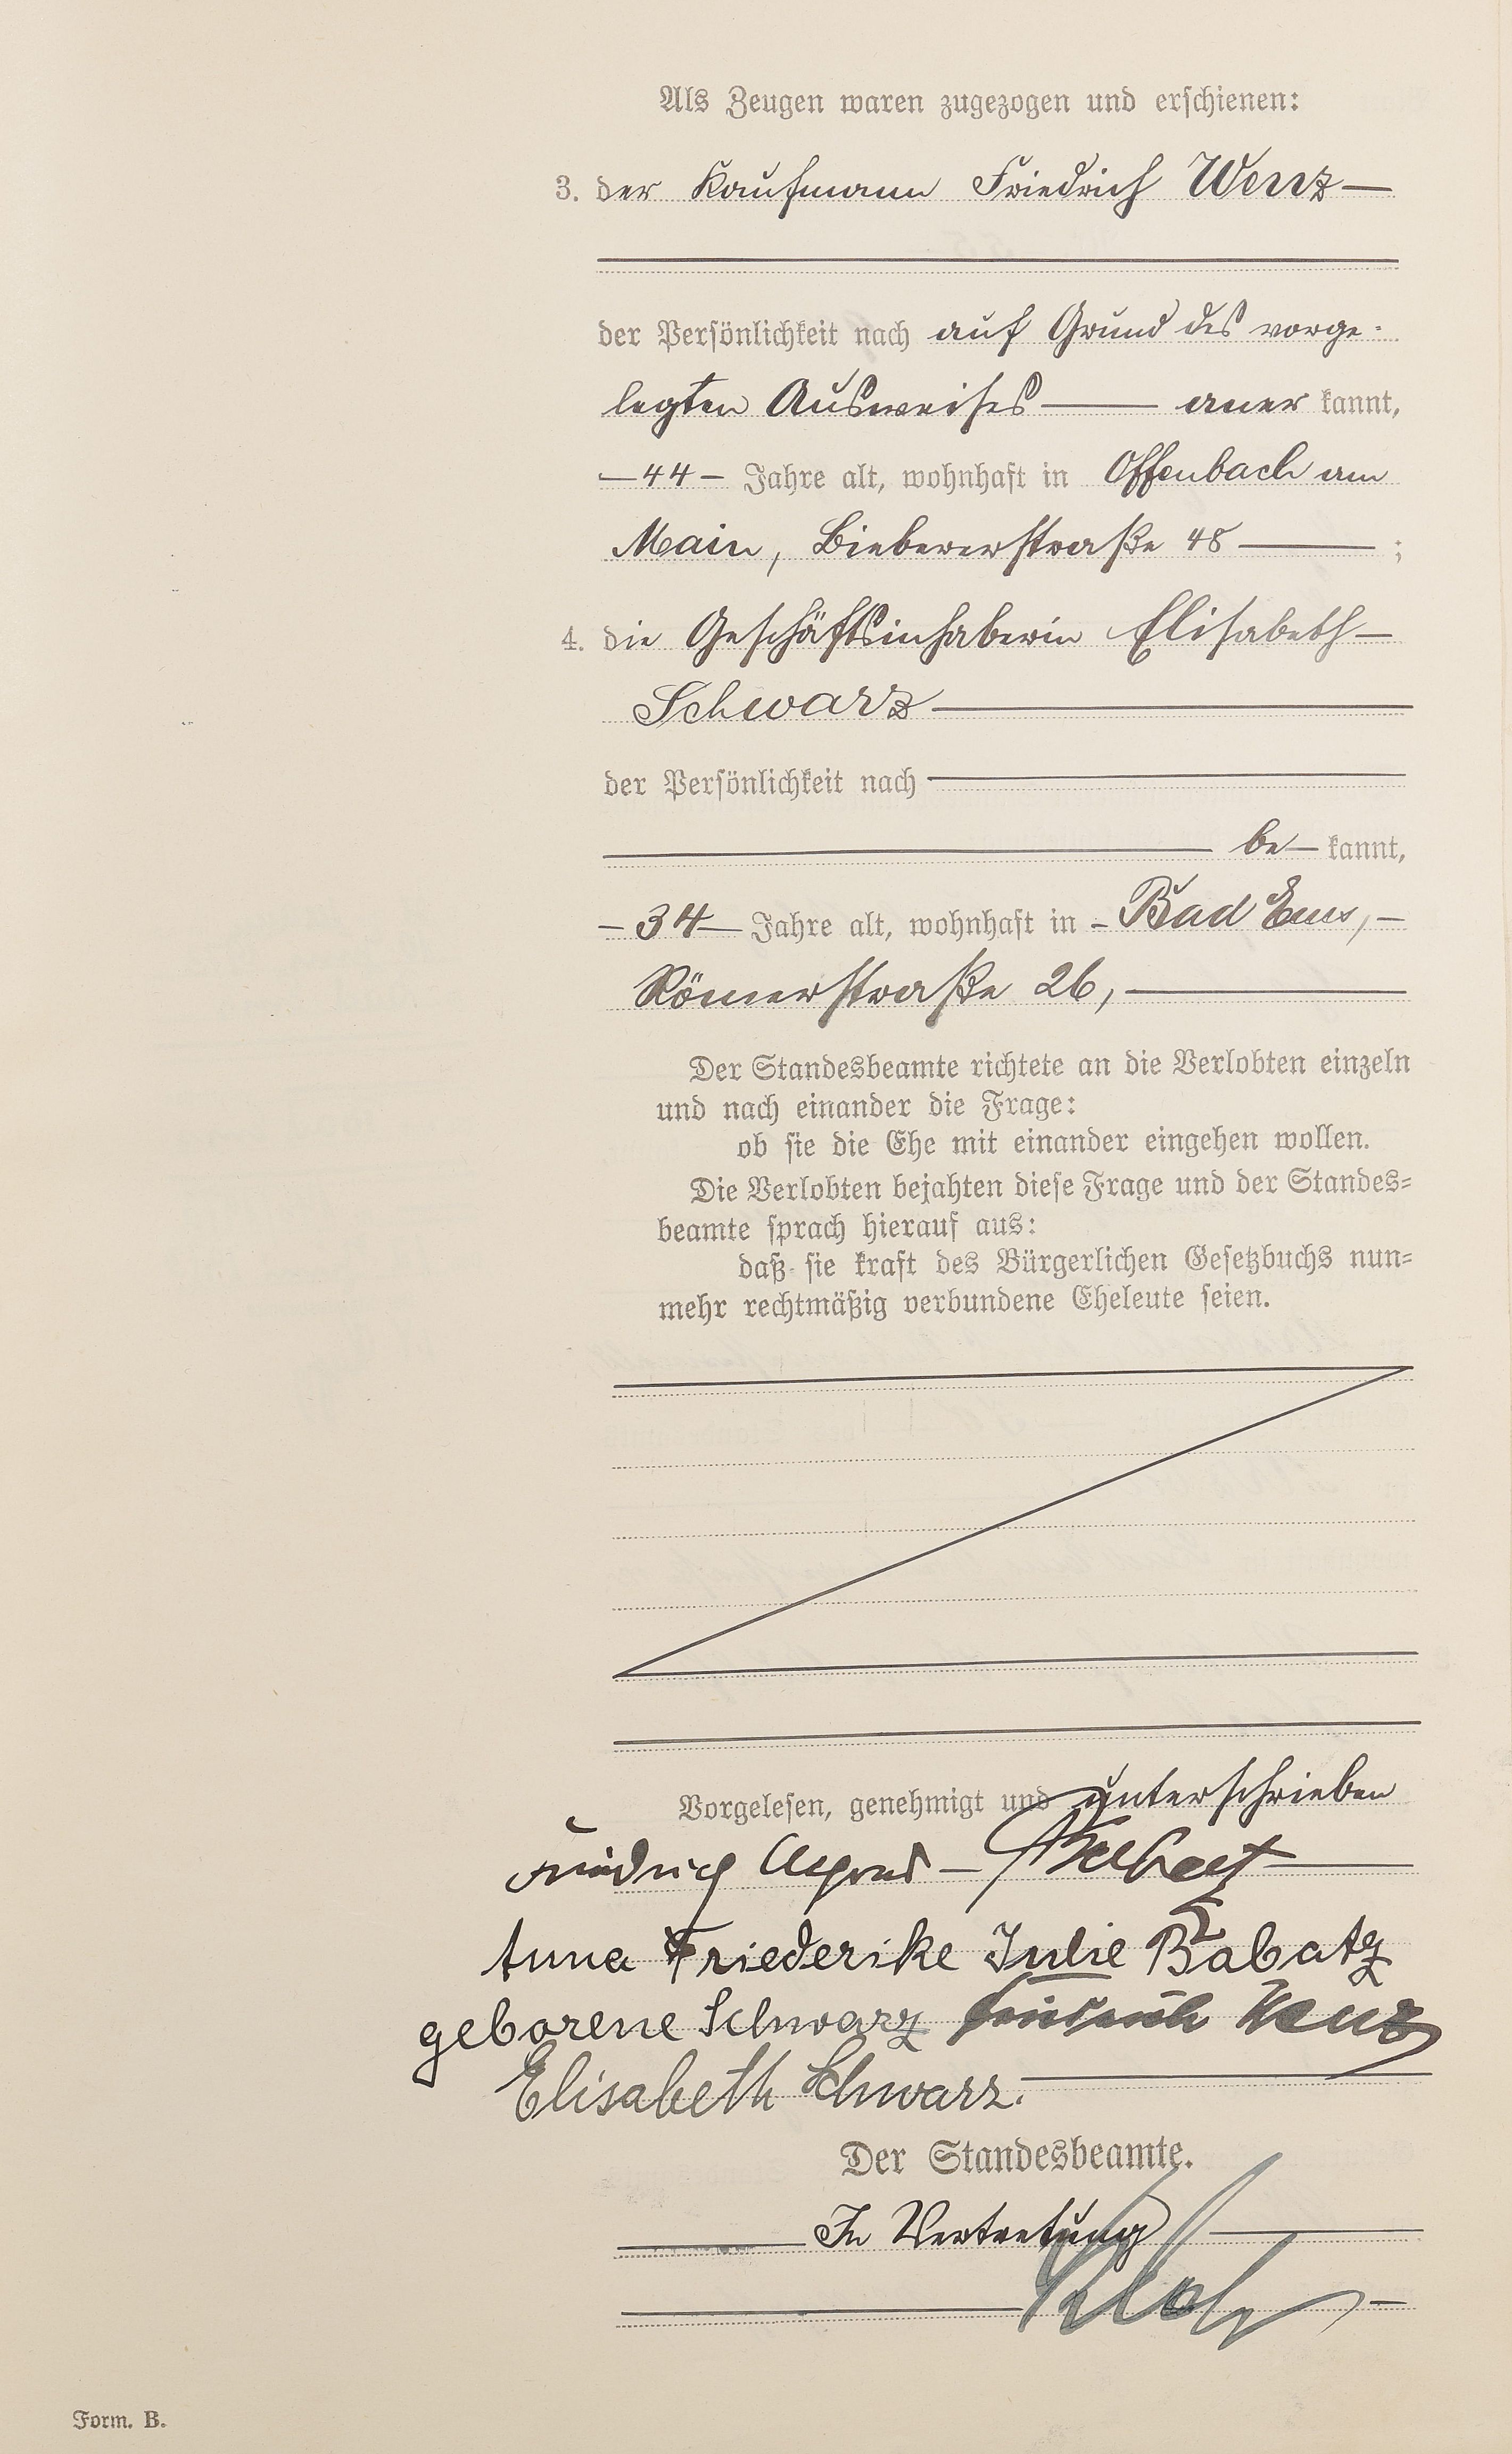 Als Zeugen waren zugezogen und erschienen:
3. der Kaufmann Friedrich Wenz
der Persönlichkeit nach auf Grund des vorge-
legten Ausweises aner kannt,
44 Jahre alt, wohnhaft in Offenbach am
Main, Biebererstraße 48 ;
4. die Geschäftsinhaberin Elisabeth
Schwarz
der Persönlichkeit nach
be kannt,
34 Jahre alt, wohnhaft in Bad Ems,
Römerstraße 26,
Der Standesbeamte richtete an die Verlobten einzeln
und nach einander die Frage:
ob sie die Ehe mit einander eingehen wollen.
Die Verlobten bejahten diese Frage und der Standes-
beamte sprach hierauf aus:
daß sie kraft des Bürgerlichen Gesetzbuchs nun-
mehr rechtmäßig verbundene Eheleute seien.
Vorgelesen, genehmigt und unterschrieben
Friedrich
Anna Friederike Julie Babatz
geborene Schwarz Friedrich Wenz
Elisabeth Schwarz.
Der Standesbeamte.
In Vertretung
Form. B.